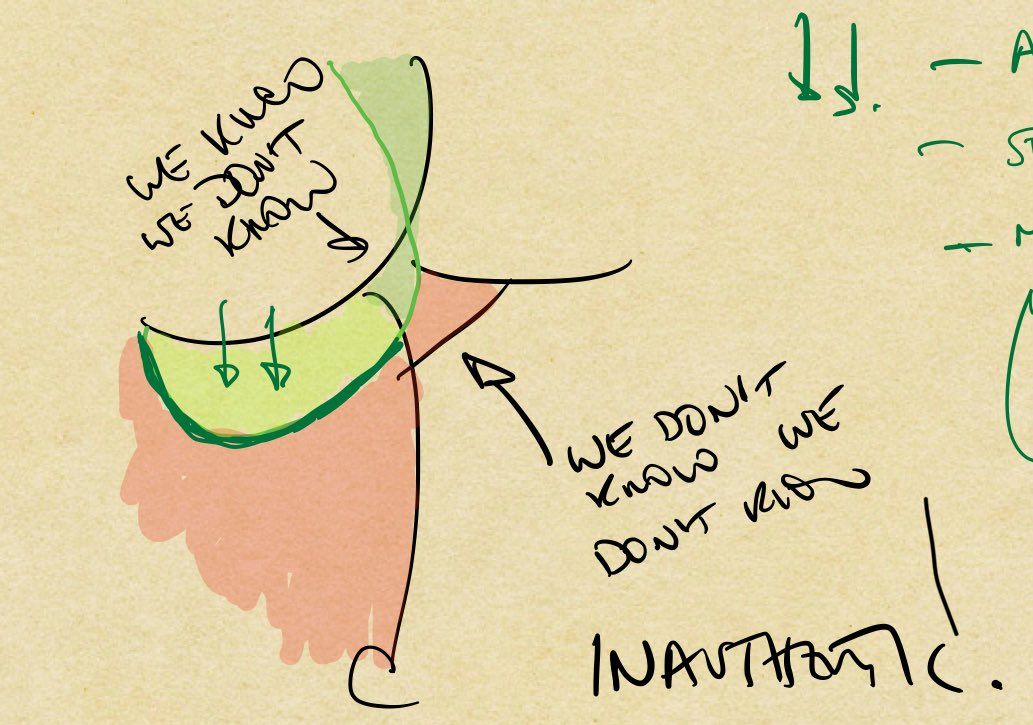 WE KNOW
WE DON'T
KNOW
— A
— ST
— M
WE DON'T
KNOW WE
DON'T KNOW
INAUTHENTIC.